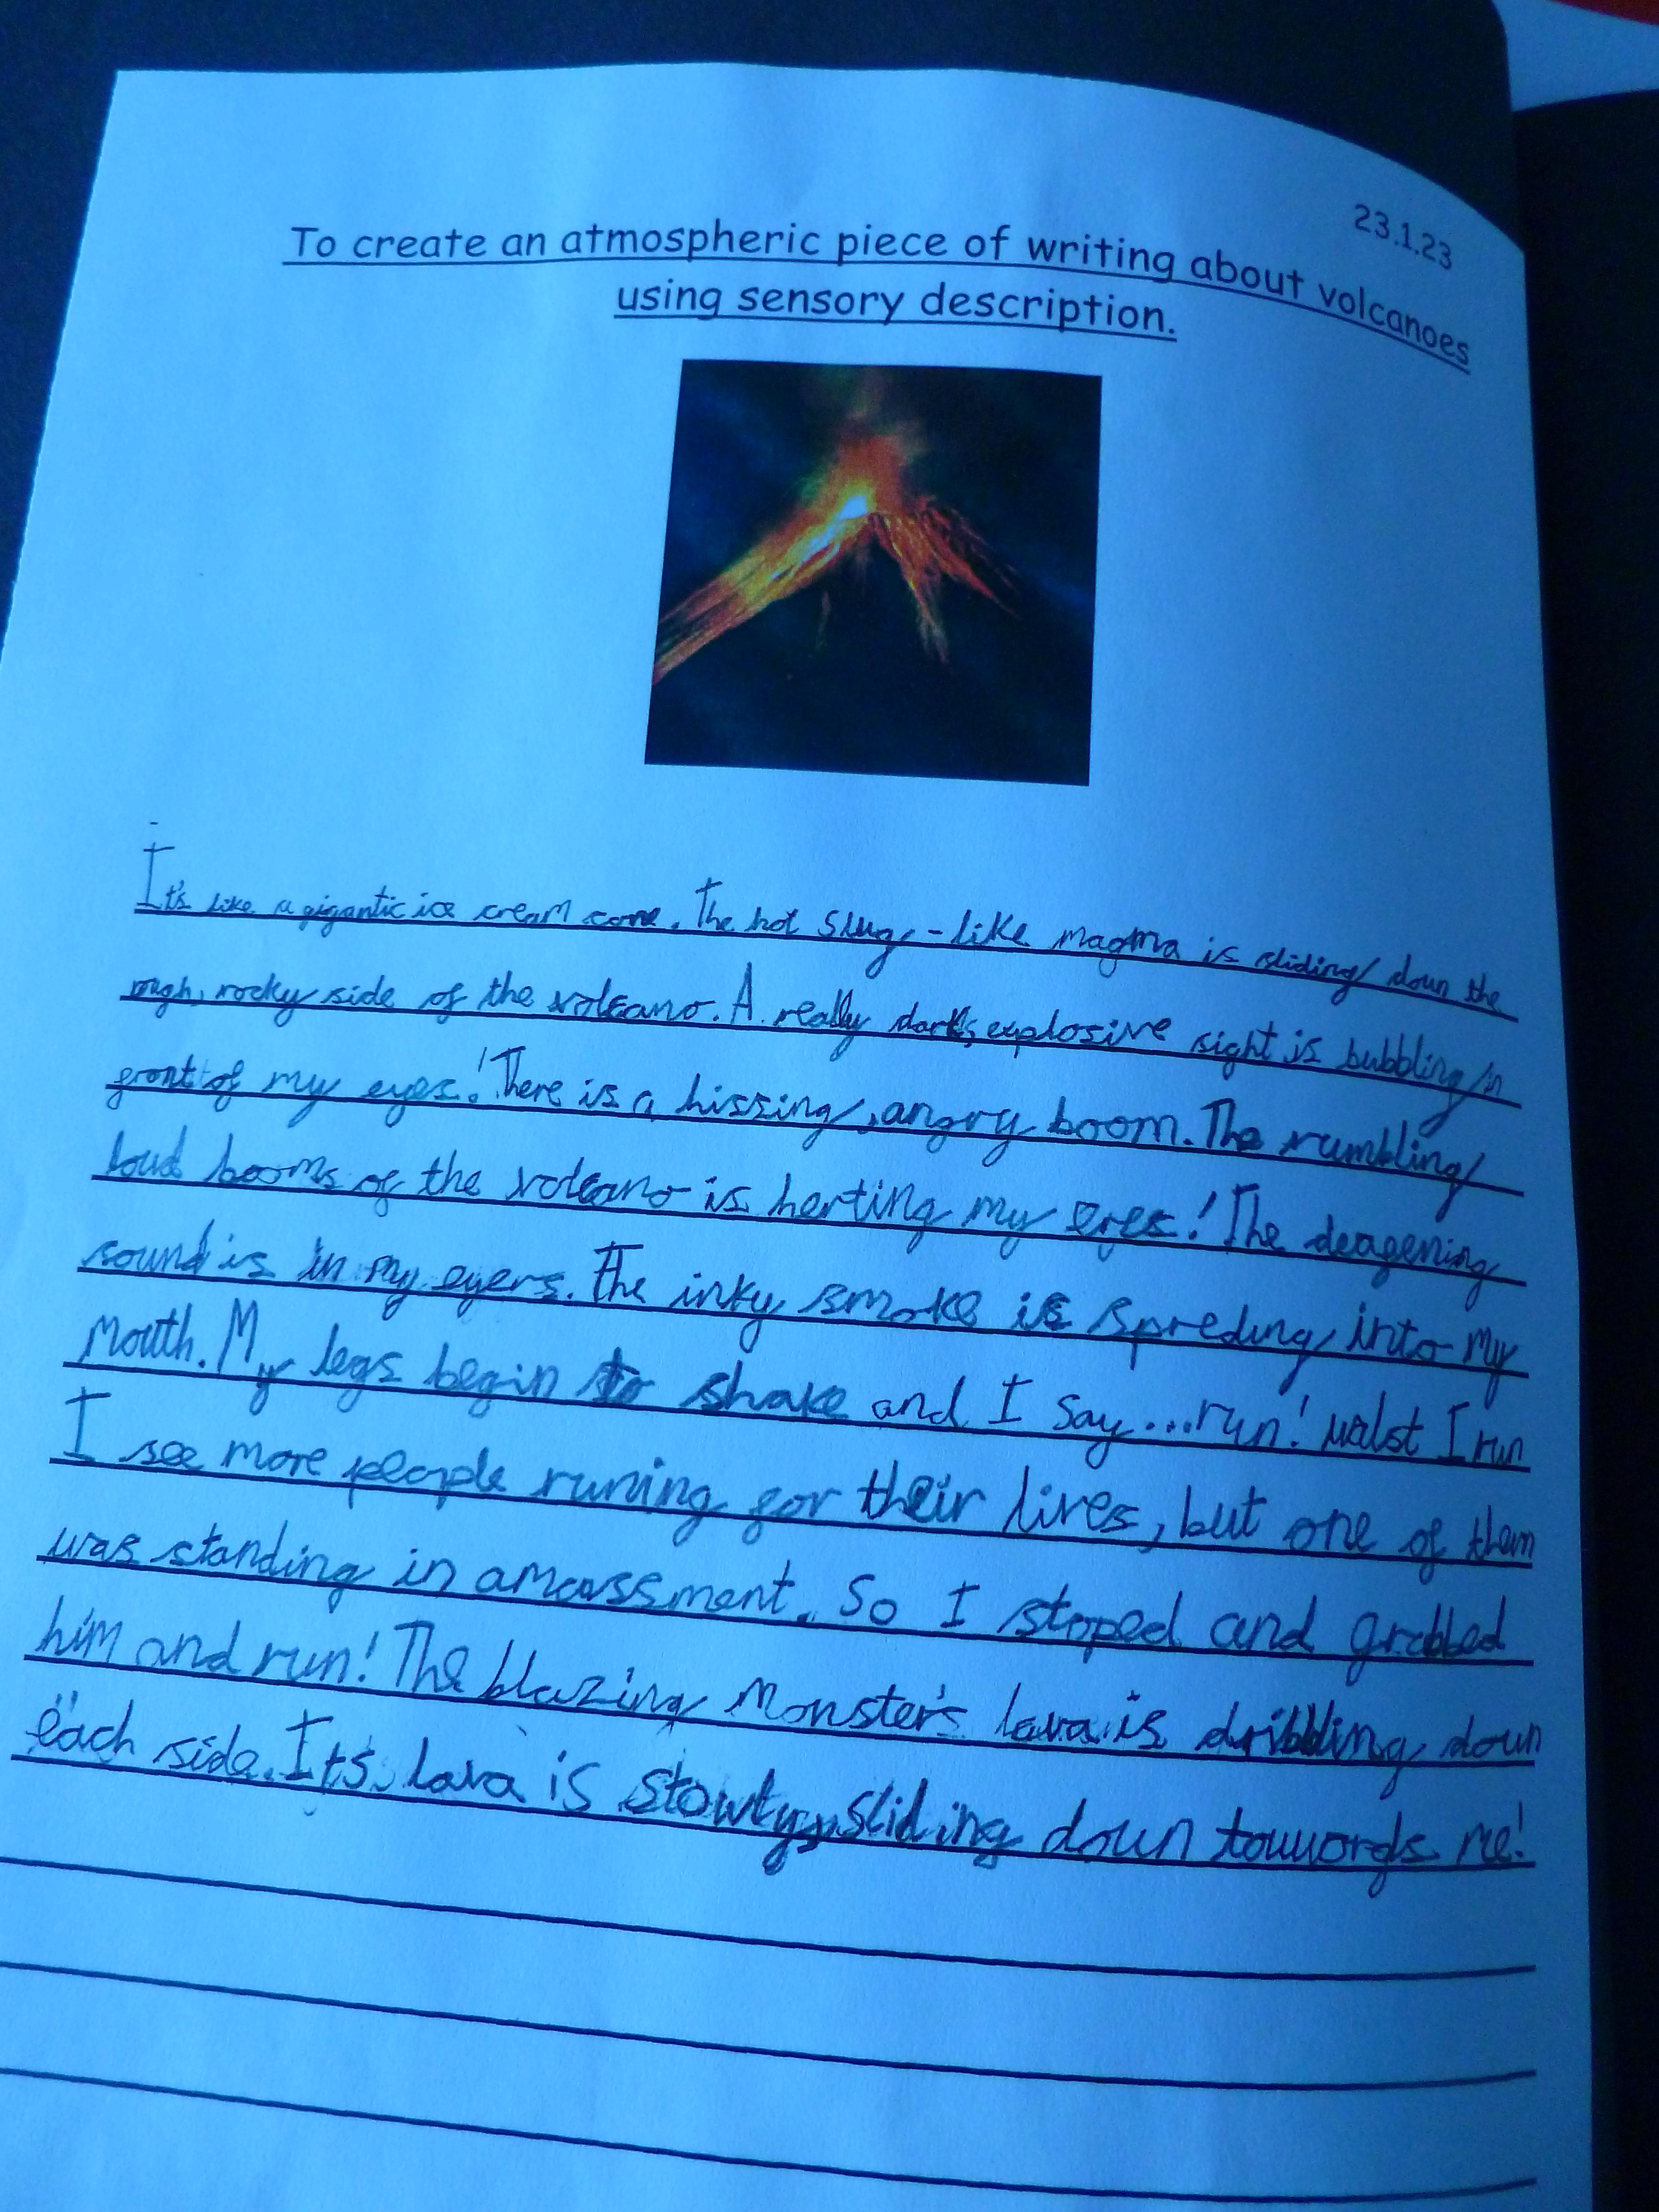 23.1.23
To create an atmospheric piece of writing about volcanoes
using sensory description.
It's like a gigantic ice cream cone. The hot slug,-like magma is sliding down the
rough, rocky side of the volcano. A really dark, explosive sight is bubbling in
front of my eyes! There is a hissing, angry boom. The rumbling
loud booms of the volcano is herting my eyes! The deafening
sound is in my eyers. The inky smoke is spreding into my
mouth. My legs begin to shake and I say...run! walst I run
I see more people runing for their lives, but one of them
was standing in amassment. So I stoped and grabbed
him and run! The blazing monster's lava is dribbling down
each side. It's lava is slowly, sliding down towords me!